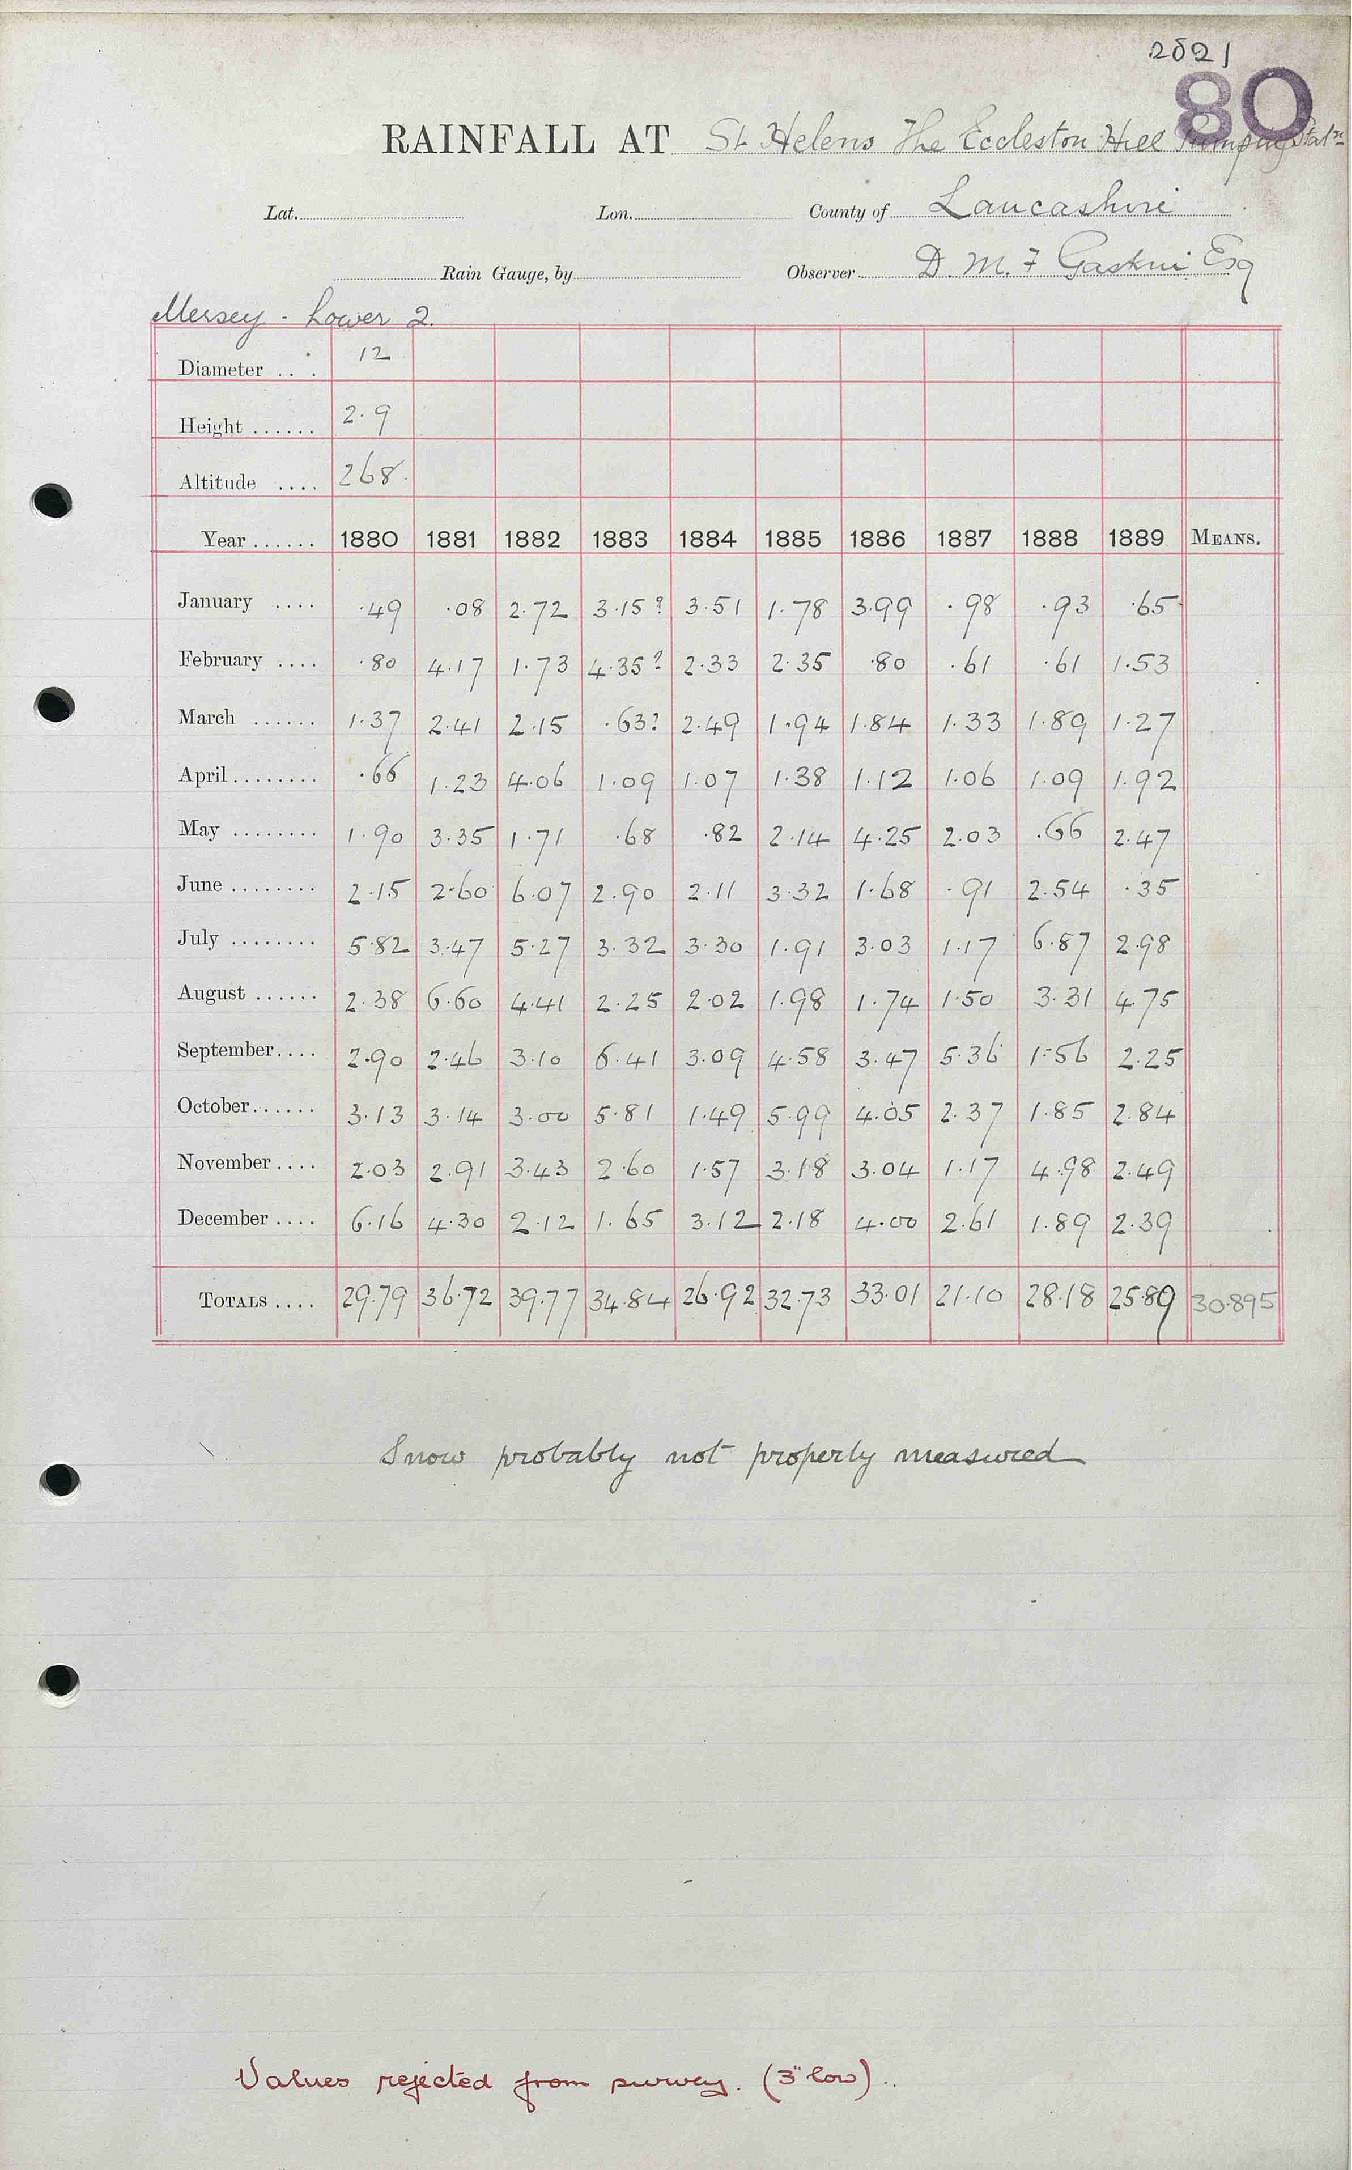 2821
80
RAINFALL AT St Helens The Eccleston Hill Pumping Statn
Lat. Lon. County of Lancashire
Rain Gauge, by Observer D. M. F Gaskin Esq
Mersey - Lower 2.
Diameter .. . 12
Height ...... 2.9
Altitude .... 268.
Year ...... 1880 1881 1882 1883 1884 1885 1886 1887 1888 1889 MEANS.
January .... .49 .08 2.72 3.15? 3.51 1.78 3.99 .98 .93 .65
February .... .80 4.17 1.73 4.35? 2.33 2.35 .80 .61 .61 1.53
March ...... 1.37 2.41 2.15 .63? 2.49 1.94 1.84 1.33 1.89 1.27
April ........ .66 1.23 4.06 1.09 1.07 1.38 1.12 1.06 1.09 1.92
May ........ 1.90 3.35 1.71 .68 .82 2.14 4.25 2.03 .66 2.47
June ........ 2.15 2.60 6.07 2.90 2.11 3.32 1.68 .91 2.54 .35
July ........ 5.82 3.47 5.27 3.32 3.30 1.91 3.03 1.17 6.87 2.98
August ...... 2.38 6.60 4.41 2.25 2.02 1.98 1.74 1.50 3.31 4.75
September.... 2.90 2.46 3.10 6.41 3.09 4.58 3.47 5.36 1.56 2.25
October...... 3.13 3.14 3.00 5.81 1.49 5.99 4.05 2.37 1.85 2.84
November .... 2.03 2.91 3.43 2.60 1.57 3.18 3.04 1.17 4.98 2.49
December .... 6.16 4.30 2.12 1.65 3.12 2.18 4.00 2.61 1.89 2.39
TOTALS .... 29.79 36.72 39.77 34.84 26.92 32.73 33.01 21.10 28.18 25.89 30.895
Snow probably not properly measured
Values rejected from survey. (3" low).